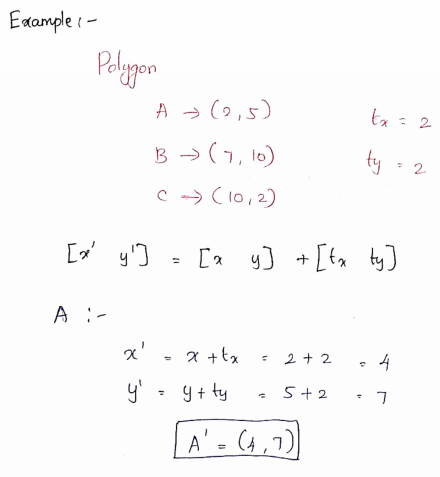 Example :-
Polygon
A → (2, 5) tx = 2
B → (7, 10) ty = 2
C → (10, 2)
[x' y'] = [x y] + [tx ty]
A :-
x' = x + tx = 2 + 2 = 4
y' = y + ty = 5 + 2 = 7
A' = (4, 7)